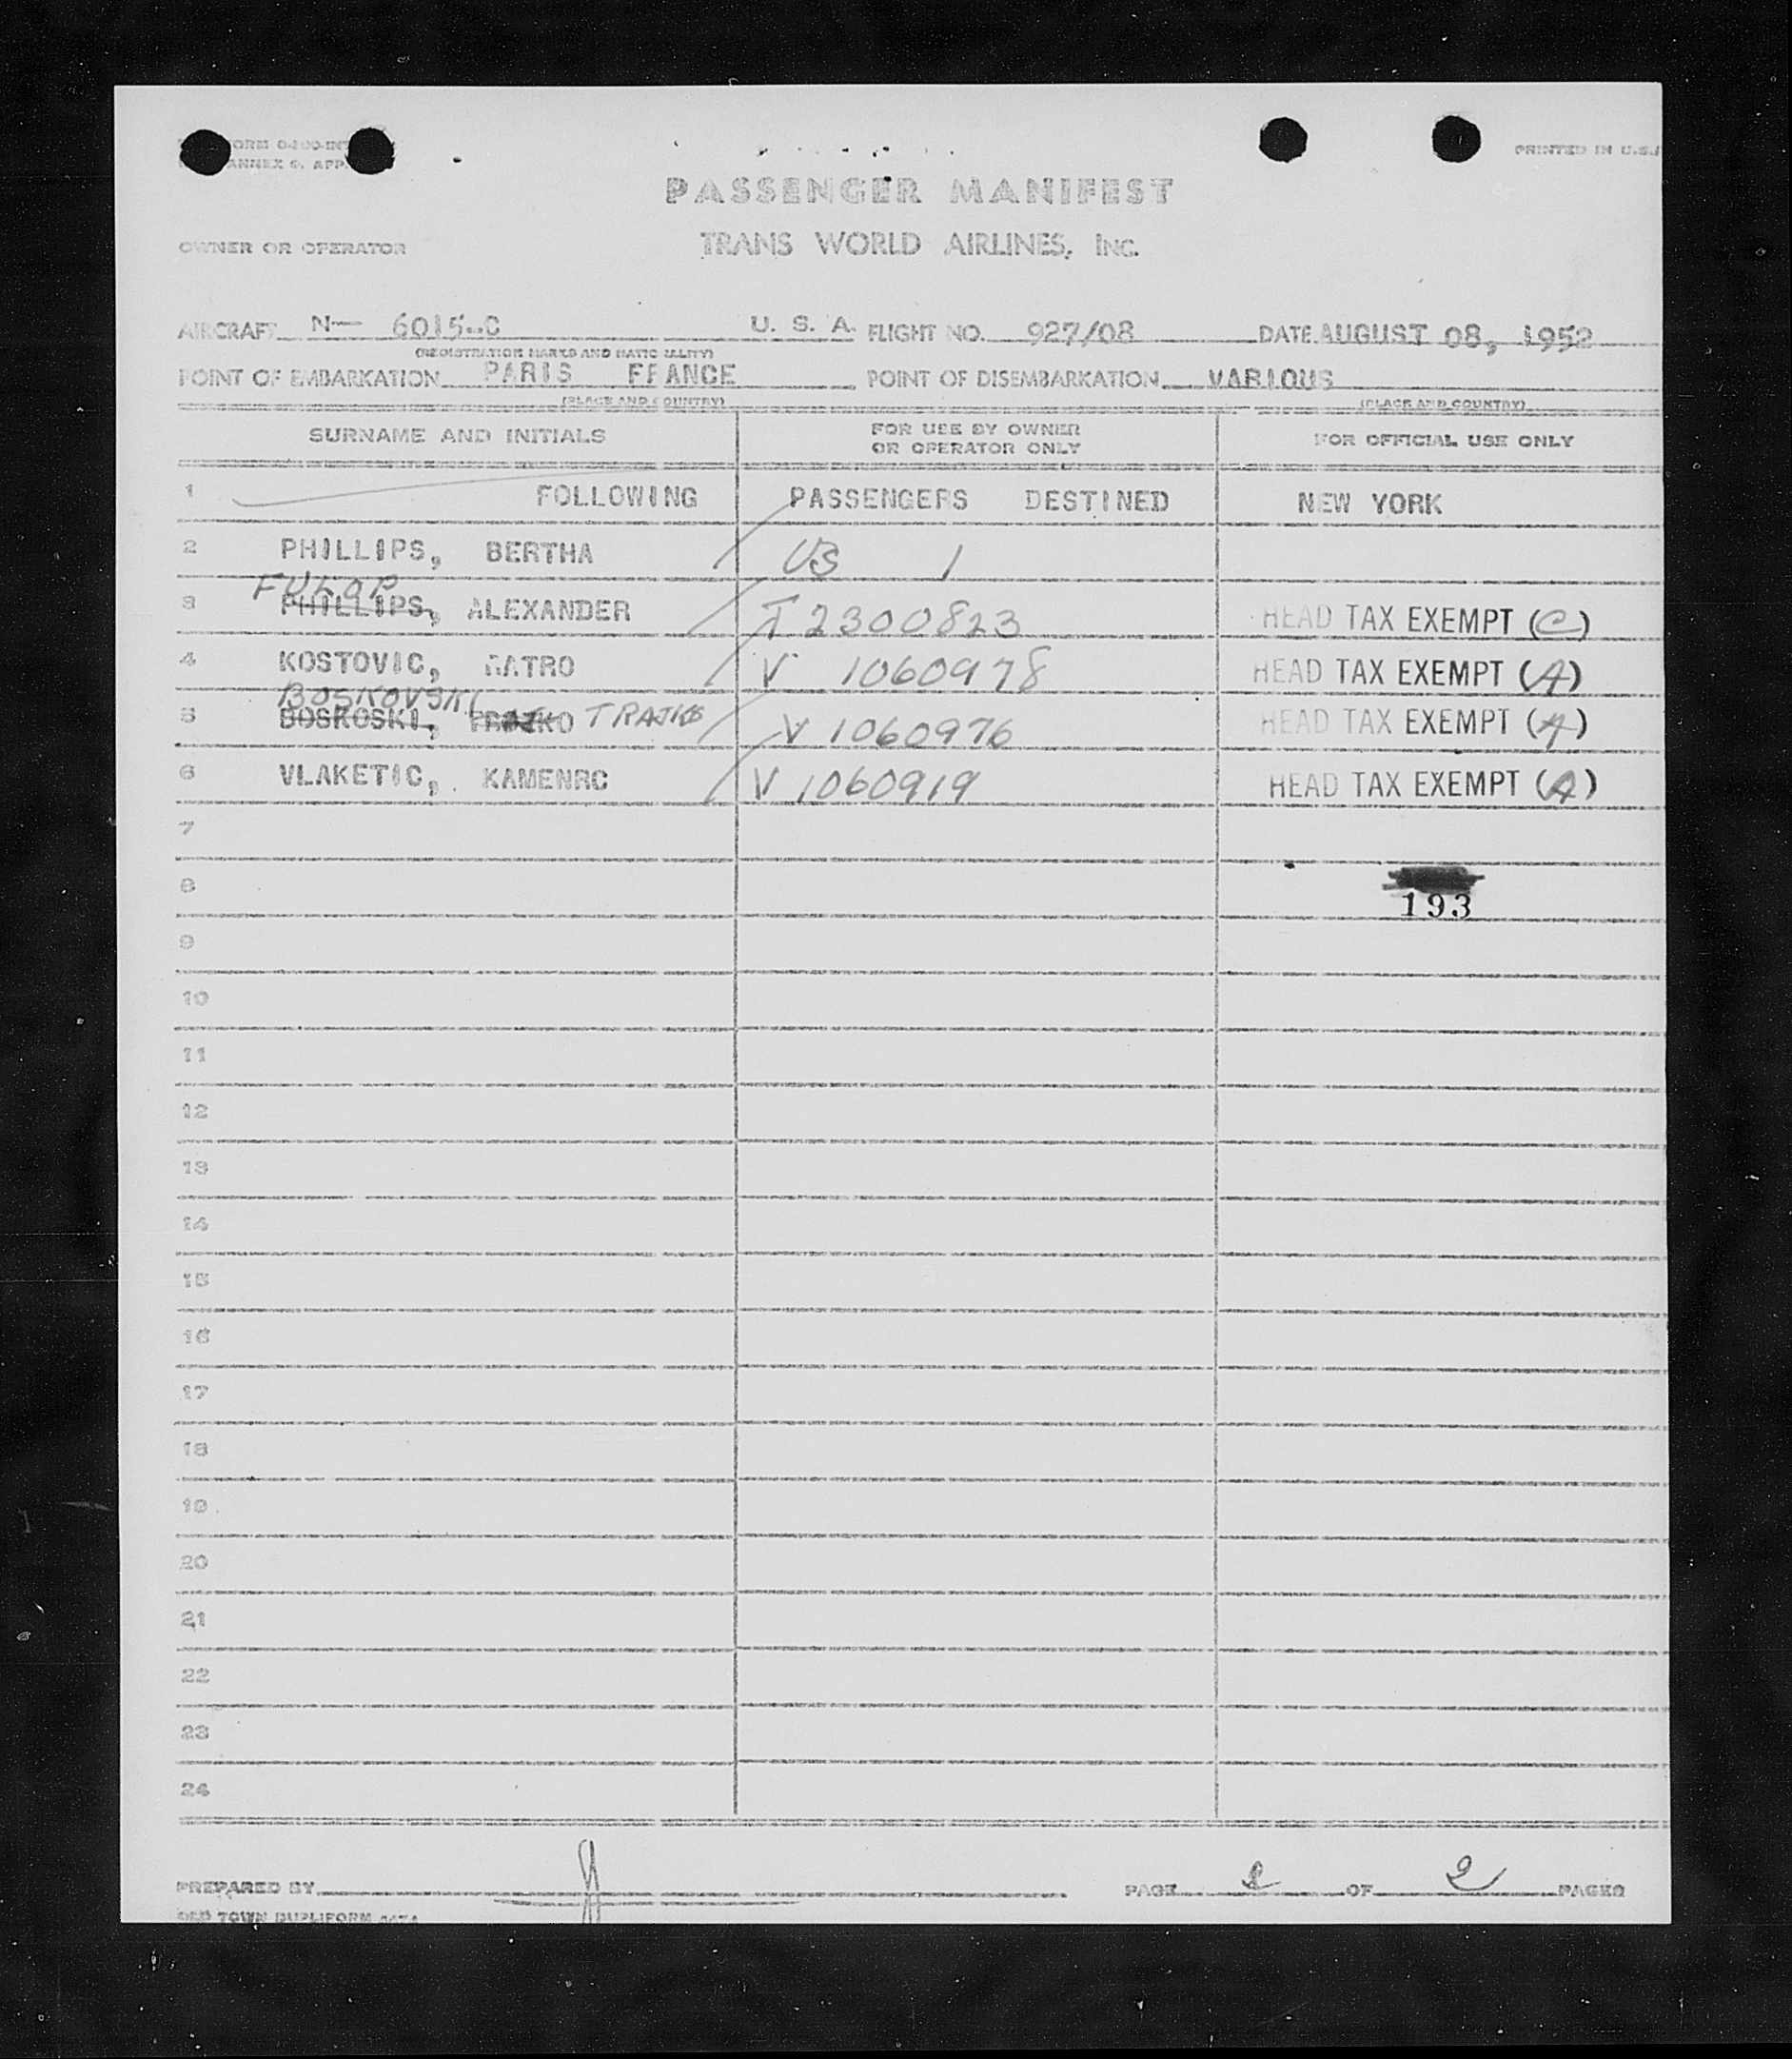 ANNEX 9. APP.
PRINTED IN U.S.
PASSENGER MANIFEST
OWNER OR OPERATOR TRANS WORLD AIRLINES, INC.
AIRCRAFT N— 6015-C U. S. A. FLIGHT NO. 927/08 DATE AUGUST 08, 1952
(REGISTRATION MARKS AND NATIONALITY)
POINT OF EMBARKATION PARIS FRANCE POINT OF DISEMBARKATION VARIOUS
(PLACE AND COUNTRY) (PLACE AND COUNTRY)
SURNAME AND INITIALS FOR USE BY OWNER OR OPERATOR ONLY FOR OFFICIAL USE ONLY
1 FOLLOWING PASSENGERS DESTINED NEW YORK
2 PHILLIPS, BERTHA US 1
FULOP
3 PHILLIPS, ALEXANDER T 2300823 HEAD TAX EXEMPT (C)
4 KOSTOVIC, RATRO V 1060978 HEAD TAX EXEMPT (A)
BOSKOVSKI
5 BOSKOSKI, TRAJKO V 1060976 HEAD TAX EXEMPT (A)
6 VLAKETIC, KAMENRC V 1060919 HEAD TAX EXEMPT (A)
7
8 193
9
10
11
12
13
14
15
16
17
18
19
20
21
22
23
24
PREPARED BY PAGE 2 OF 2 PAGES
OLD TOWN DUPLIFORM